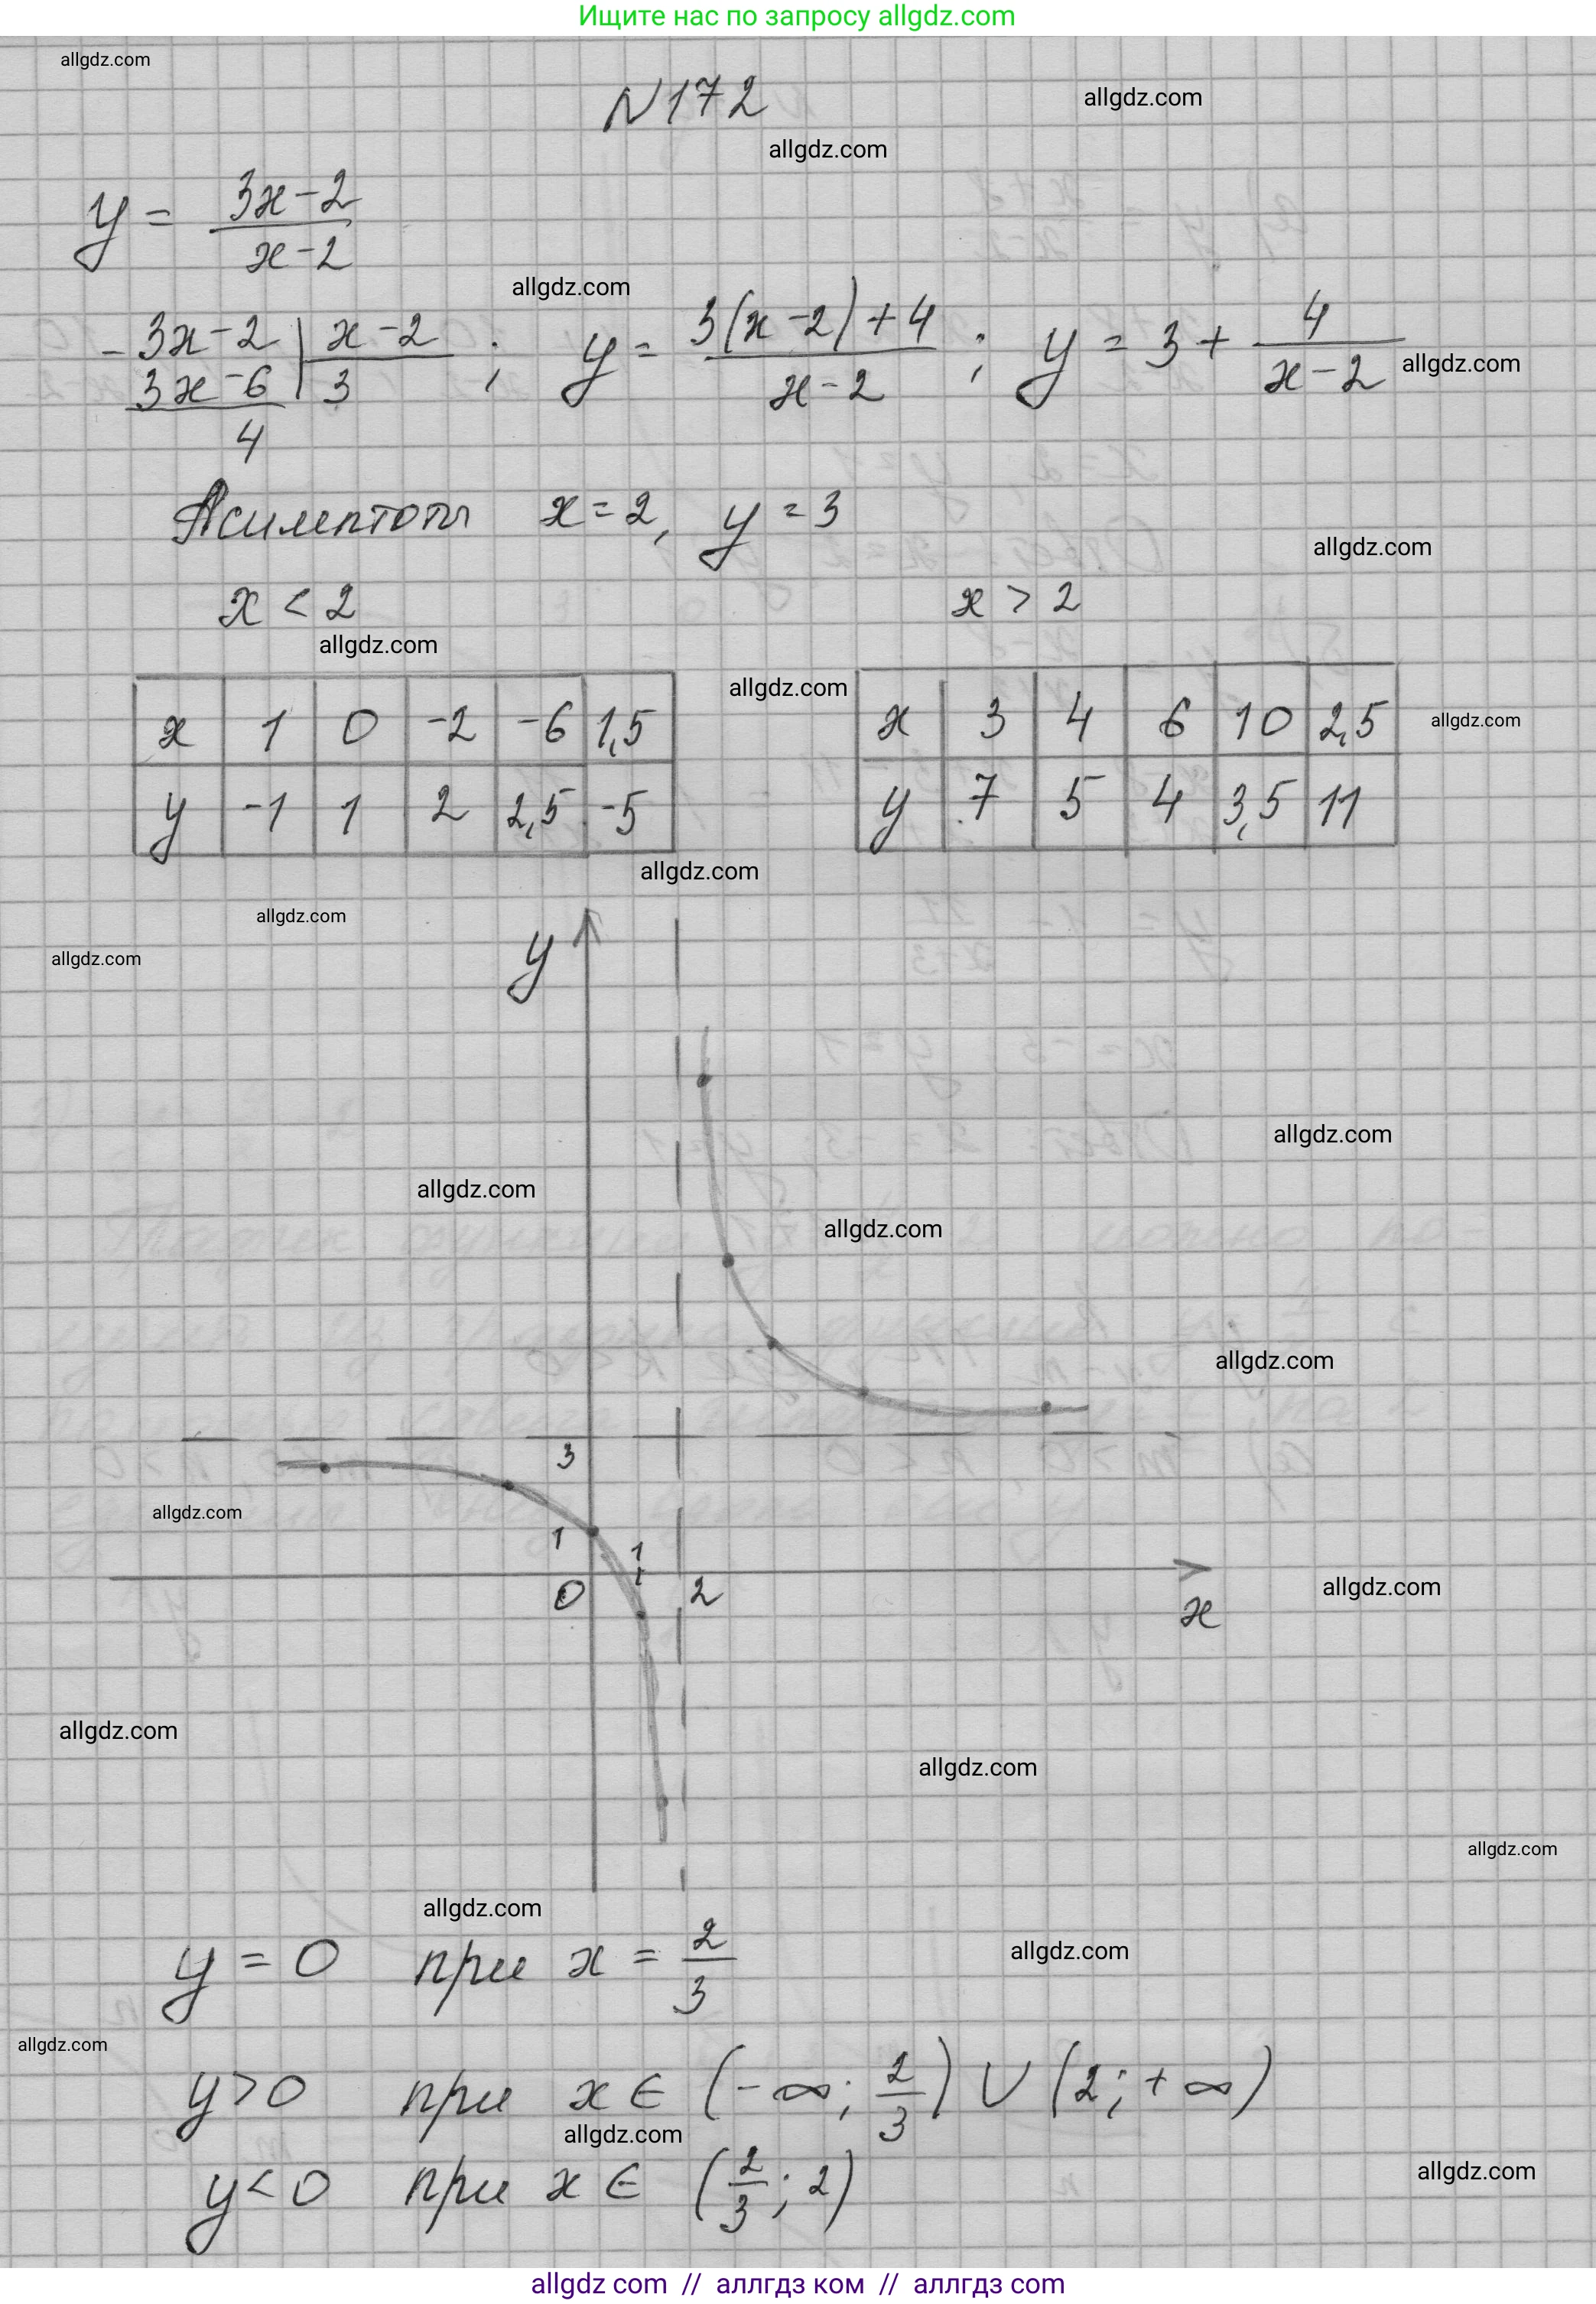 Ищите нас по запросу allgdz.com
allgdz.com
N172
allgdz.com
allgdz.com
y = (3x-2)/(x-2)
allgdz.com
- 3x-2 | x-2 ; y = (3(x-2)+4)/(x-2) ; y = 3 + 4/(x-2)
3x-6 | 3
4
allgdz.com
Асимптоты x=2, y=3
allgdz.com
x < 2 x > 2
allgdz.com
allgdz.com
x 1 0 -2 -6 1,5
y -1 1 2 2,5 -5
x 3 4 6 10 2,5
y 7 5 4 3,5 11
allgdz.com
allgdz.com
allgdz.com
allgdz.com
y
allgdz.com
allgdz.com
allgdz.com
allgdz.com
3
allgdz.com
1
1
0 2
x
allgdz.com
allgdz.com
allgdz.com
allgdz.com
allgdz.com
y = 0 при x = 2/3
allgdz.com
allgdz.com
y>0 при x ∈ (-∞; 2/3) ∪ (2; +∞)
allgdz.com
y<0 при x ∈ (2/3; 2)
allgdz.com
allgdz com // аллгдз ком // аллгдз com